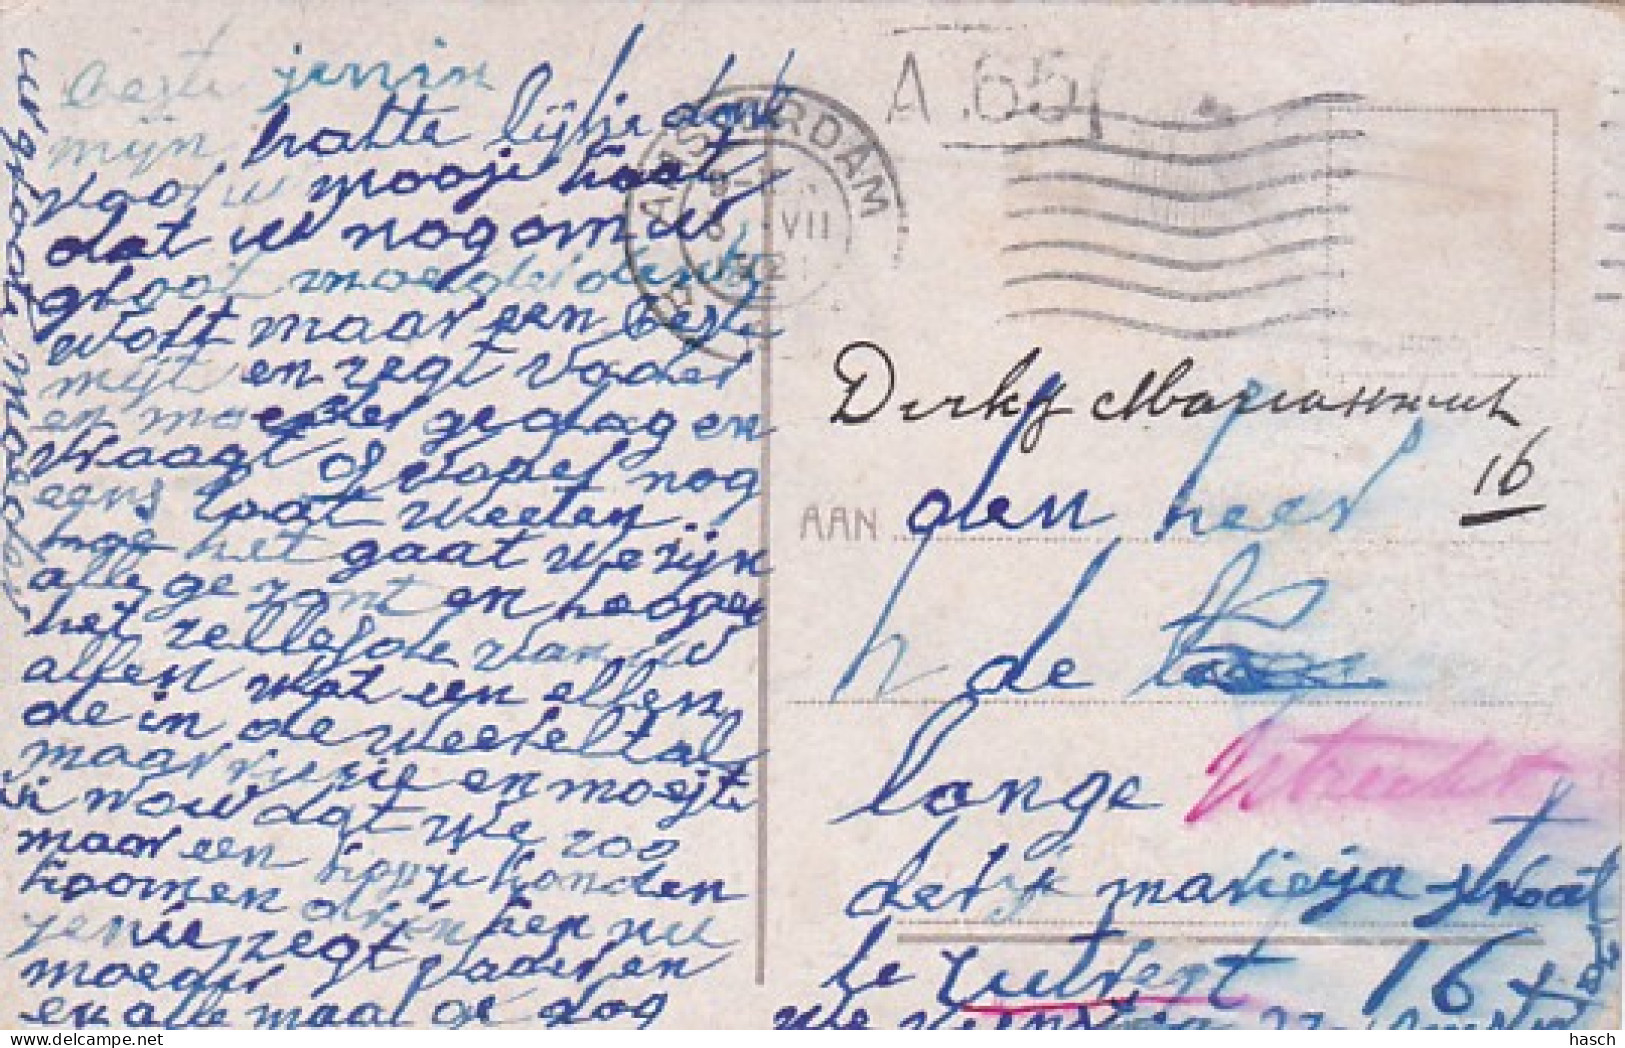 beste jennin
mijn hatte lijke dank
voor u mooje kaat
dat u nog om u
groot moeder denkt
wort maar een beste
mijt en zegt vader
en moeder gedag en
vraagt of vader nog
eens laat weeten
hoe het gaat we zijn
alle ge zont en hoopen
het zellefde van u
allen wat een ellen
de in de weereltal
maar ruzie en moejte
ik wou dat we zoo
maar een kopje konden
koomen drinken nu
jennie zegt vader en
moeder
en alle maal ge dag
u groot moeder
AMSTERDAM
VII
A.651
Dirk Mariastraat
16
AAN den heer
h de
lange Utrecht
derk marieja straat
te Zutrent 16
hasch